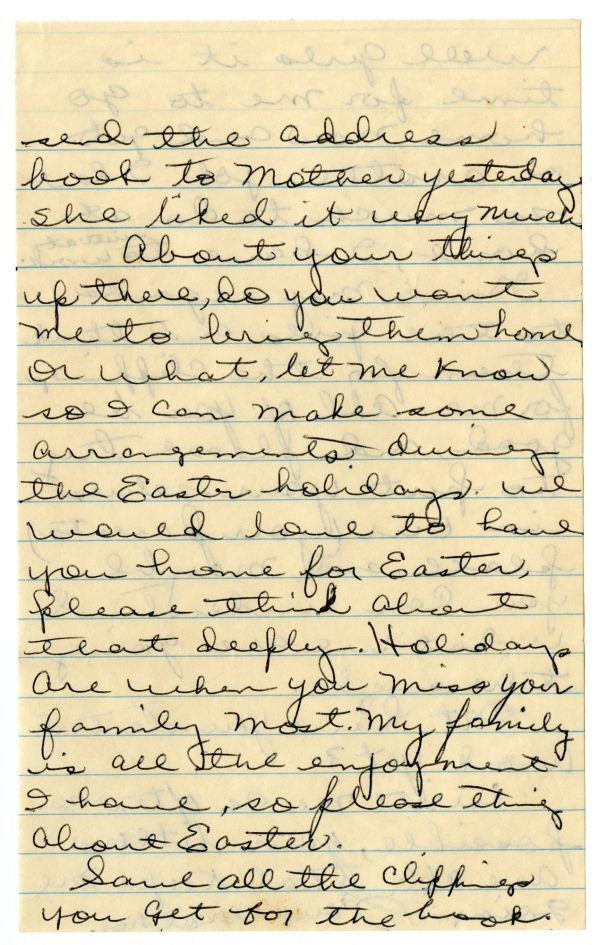 send the address
book to Mother yesterday
she liked it very much
About your things
up there, do you want
me to bring them home
or what, let me know
so I can make some
arrangements during
the Easter holidays. we
would love to have
you home for Easter,
please think about
that deeply. Holidays
are when you miss your
family most. My family
is all the enjoyment
I have, so please thing
about Easter.
Save all the clippings
you get for the book.